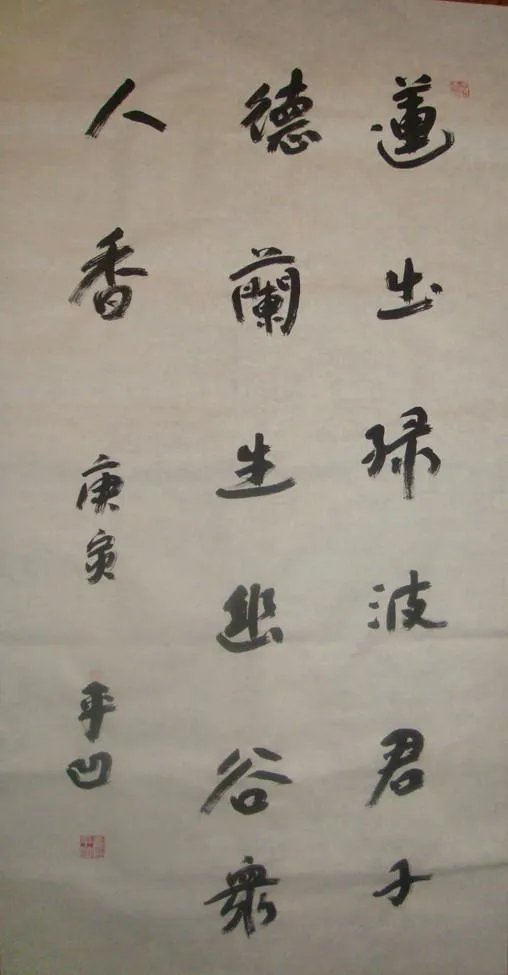 蓮出绿波君子
德蘭生幽谷衆
人香
庚寅
平凹